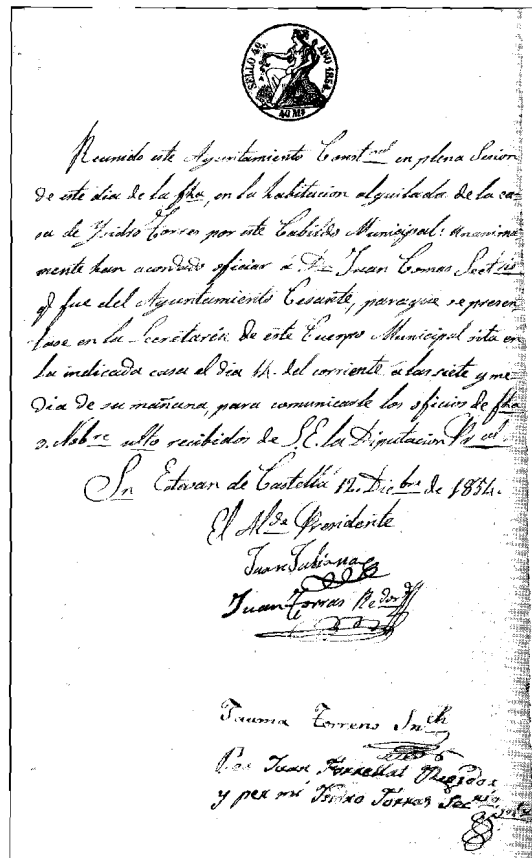 SELLO 4º AÑO 1854.
40 Ms
Reunido este Ayuntamiento Const.nal en plena Sesion
de este dia de la fha, en la habitacion alquilada de la ca-
sa de Ysidro Torres por este Cabildo Municipal: unanima-
mente han acordado oficiar á Dn. Juan Comas Sect.rio
q.e fue del Ayuntamiento Cesante, para que se presen-
tase en la Secretaria de este Cuerpo Municipal sita en
la indicada casa el dia 14. del corriente a las siete y me-
dia de su mañana, para comunicarle los oficios de fha
Nobre. ulto recibidos de S.E. la Diputacion Pr.cal
Sn Estevan de Castellá 12. Dic.bre de 1854.
El Al.de Presidente
Juan
Juan Torras Re.dor
Jauma Torrens Sn.ch
Por Juan Regidor
y per mi Ysidro Torras Sec.rio